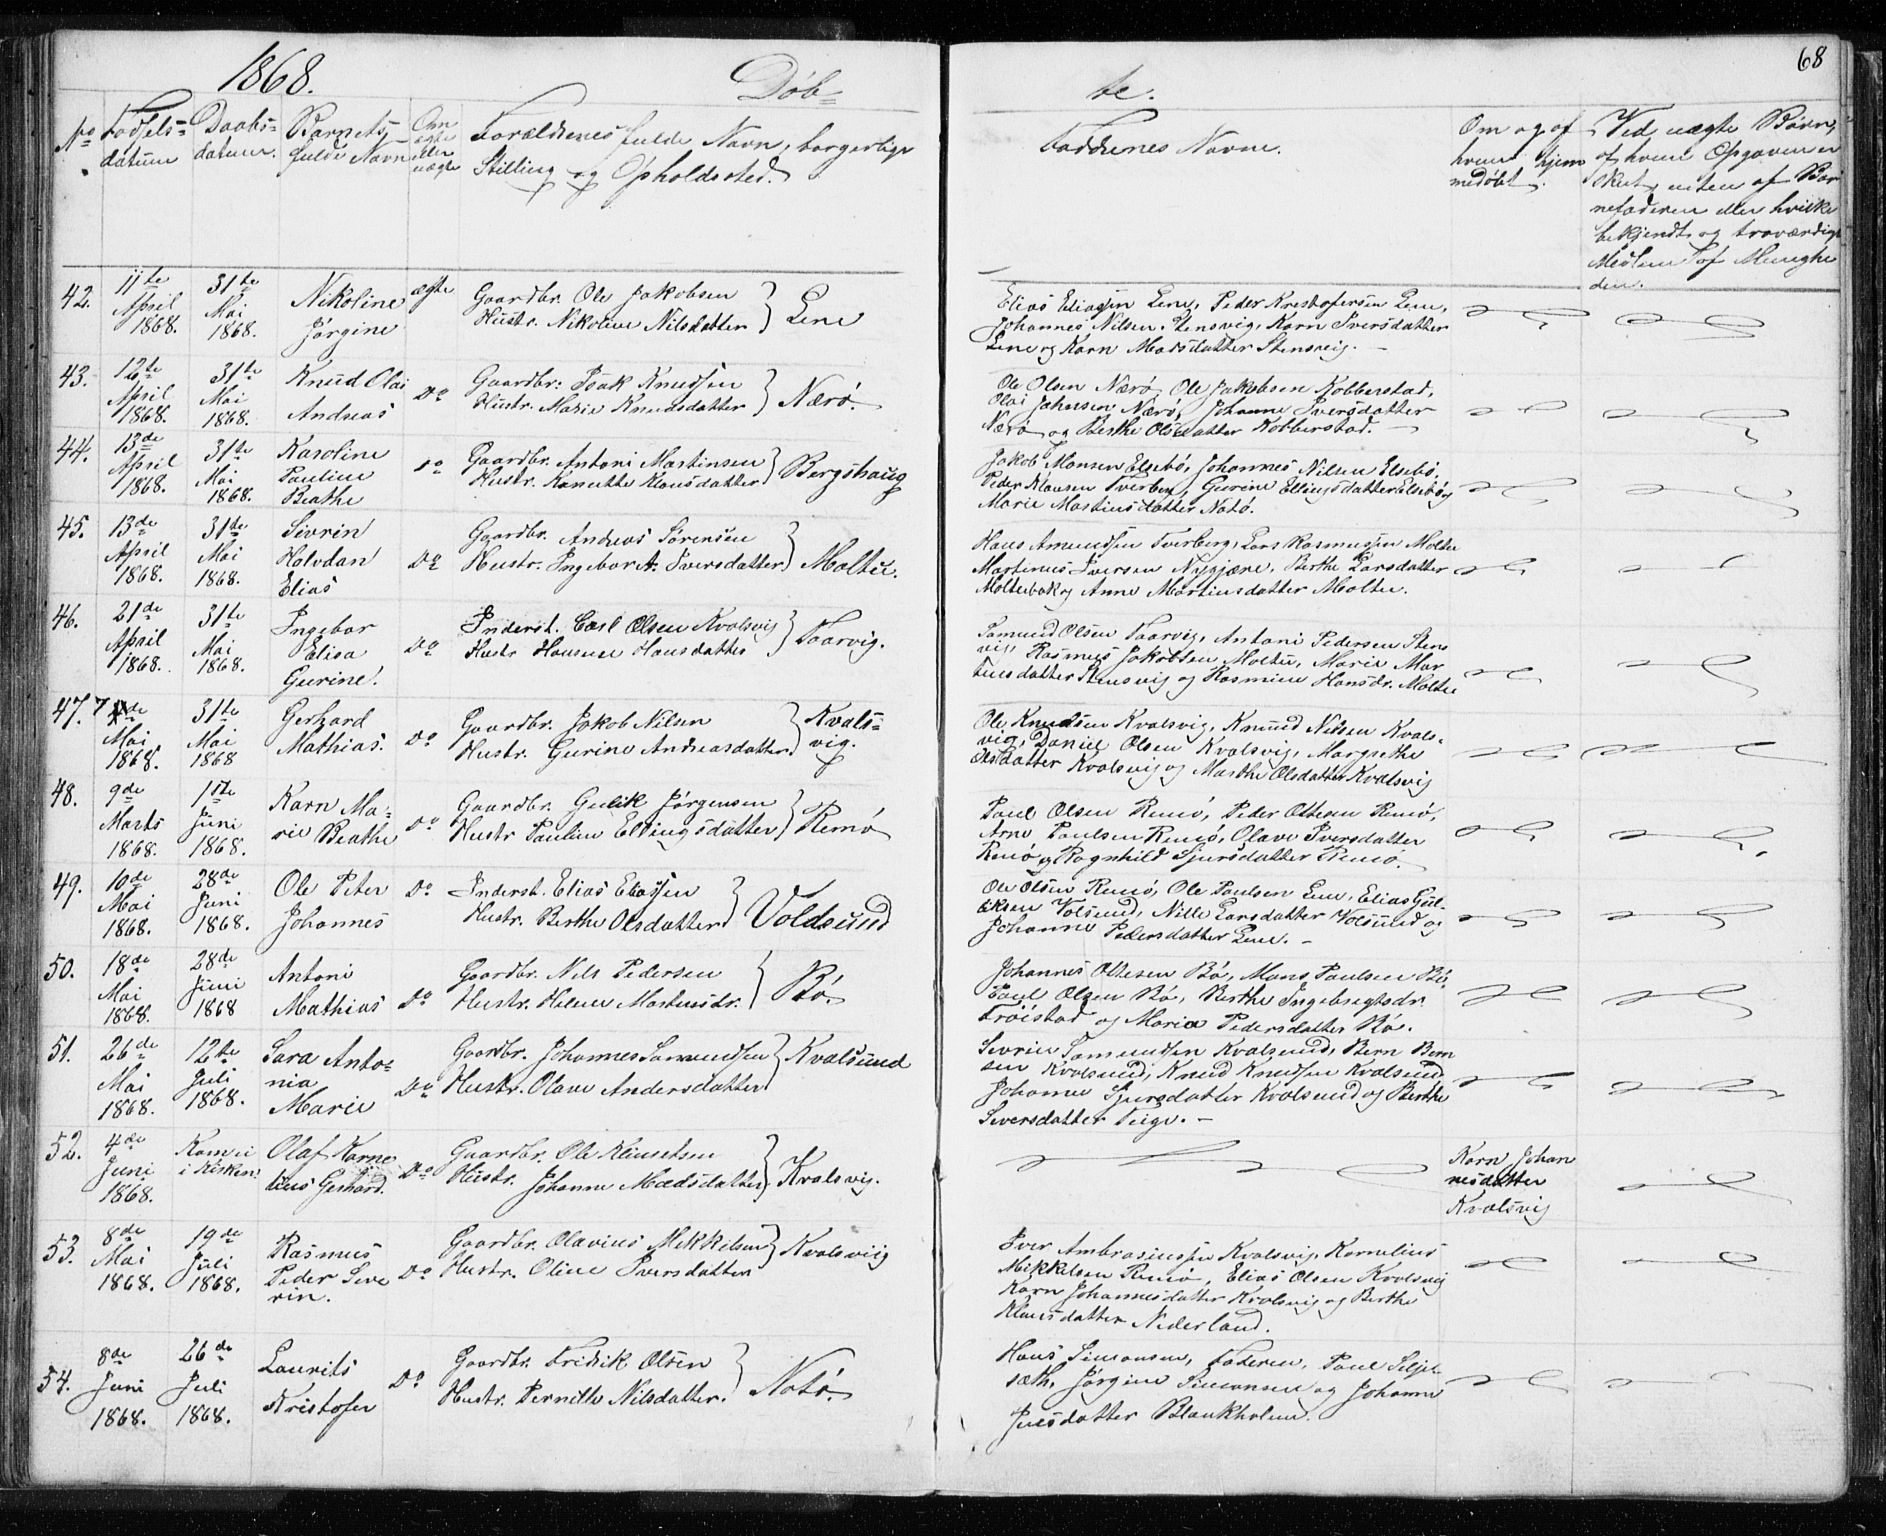 1868.
Døb-
te.
68
No
Fødsels-
datum
Daabs-
datum.
Barnets
fulde Navn
Om
ægte
eller
uægte
Forældrenes fulde Navn, borgerlige
Stilling og Opholdssted.
Faddrenes Navne.
Om og af
hvem hjem
medøbt.
Ved uægte Børn,
af hvem Opgaven er
skeet, enten af Bar
nefaderen eller hvilke
bekjendt og troværdig
Medlem af Menighe
den.
42.
11te
April
1868.
31te
Mai
1868.
Nikoline
Jørgine
ægte
Gaardbr. Ole Jakobsen
Hustr. Nikoline Nilsdatter
Lene
Elias Eliassen Lene, Peder Kristofersen Lene,
Johannes Nilsen, Stensvig, Karn Iversdatter
Lene og Karn Madsdatter Stensvig.
43.
12te
April
1868.
31te
Mai
1868.
Knud Olai
Andreas
Do
Gaardbr: Isak Knudsen
Hustr. Marie Knudsdatter
Nærø.
Ole Olsen Nærø, Ole Jakobsen Kobberstad,
Olai Johansen Nærø, Johanne Iversdatter
Nærø og Berthe Olsdatter Kobberstad.
44.
13de
April
1868.
31te
Mai
1868.
Karoline
Pauline
Beathe
Do
Gaardbr. Antoni Martinsen
Hustr. Kanutte Klausdatter
Bergshaug
Jakob Monsen Elsebø, Johannes Nilsen Elsebø,
Peder Klausen Tverberg, Gurine Ellingsdatter Elsebø og
Marie Martinusdatter Notø.
45.
13de
April
1868.
31te
Mai
1868.
Sivrin
Halvdan
Elias
Do
Gaardbr. Andreas Sørensen
Hustr. Ingebor A. Iversdatter
Moltu.
Hans Amundsen Tverberg, Lars Rasmussen Moltu
Martinus Iversen Nygjære, Berthe Larsdatter
Moltubak og Anne Martinusdatter Moltu.
46.
21de
April
1868.
31te
Mai
1868.
Ingebor
Elisa
Gurine.
Do
Inderst. Carl Olsen Kvalsvig
Hustr Hansine Hansdatter
Taarvig.
Samund Olsen Taarvig, Antoni Pedersen Stens
vig, Rasmus Jakobsen Moltu, Marie Mar
tinsdatter Stensvig og Rasmine Hansdr. Moltu
47.
7de
Mai
1868.
31te
Mai
1868
Gerhard
Mathias.
Do
Gaardbr. Jakob Nilsen
Hustr. Gurine Andreasdatter
Kvals-
vig.
Ole Knudsen Kvalsvig, Knuud Nilsen Kvals-
vig, Daniel Olsen Kvalsvig, Margrethe
Olsdatter Kvalsvig og Marthe Olsdatter Kvalsvig
48.
9de
Marts
1868.
1ste
Juni
1868.
Karn Ma-
rie Beathe
Do
Gaardbr. Gulik Jørgensen
Hustr Pauline Ellingsdatter
Remø
Paul Olsen Remø, Peder Ottesen Remø,
Arne Paulsen Remø, Olave Iversdatter
Remø og Ragnhild Sjursdatter Remø.
49.
10de
Mai
1868.
28de
Juni
1868.
Ole Peter
Johannes
Do
Inderst. Elias Eliassen
Hustr. Berthe Olsdatter
Voldsund
Ole Olsen Remø, Ole Paulsen Lene, Elias Gul-
iksen Volsund, Nille Larsdatter Volsund og
Johanne Pedersdatter Lene.
50.
18de
Mai
1868.
28de
Juni
1868
Antoni
Mathias
Do
Gaardbr. Nils Pedersen
Hustr. Helene Martinsdr.
Bø.
Johannes Ottesen Bø, Mons Paulsen Bø,
Paul Olsen Bø, Berthe Ingebregtsdr.
Frøistad og Maria Pedersdatter Bø.
51.
26de
Mai
1868.
12te
Juli
1868.
Sara Anto-
nia
Marie
Do
Gaardbr. Johannes Samundsen
Hustr. Olave Andersdatter
Kvalsund
Sevrin Samundsen Kvalsund, Bern Bern
sen Kvalsund, Knud Knudsen Kvalsund
Johanne Sjursdatter Kvalsund og Berthe
Siversdatter Teige.
52.
4de
Juni
1868.
Kom ei
i Kirken.
Olaf Karne
lius Gerhard.
Do
Gaardbr. Ole Klausetsen
Hustr. Johanne Madsdatter
Kvalsvig.
Karn Johan
nesdatter
Kvalsvig
53.
8de
Mai
1868.
19de
Juli
1868.
Rasmus
Peder Seve
rin.
Do
Gaardbr. Olavius Mikkelsen
Hustr. Oline Iversdatter
Kvalsviig
Iver Ambrosiussen Kvalsvig, Kornelius
Mikkelsen Remø, Elias Olsen Kvalsvig
Karn Johannesdatter Kvalsvig og Berthe
Klausdatter Nederland.
54.
8de
Juni
1868.
26de
Juli
1868.
Laurits
Kristofer
Do
Gaardbr. Fredrik Olsen
Hustr. Pernille Nilsdatter.
Notø.
Hans Simonsen, Faderen, Paul Siljes
sæth, Jørgine Simonsen og Johanne
Juesdatter Blankholm.